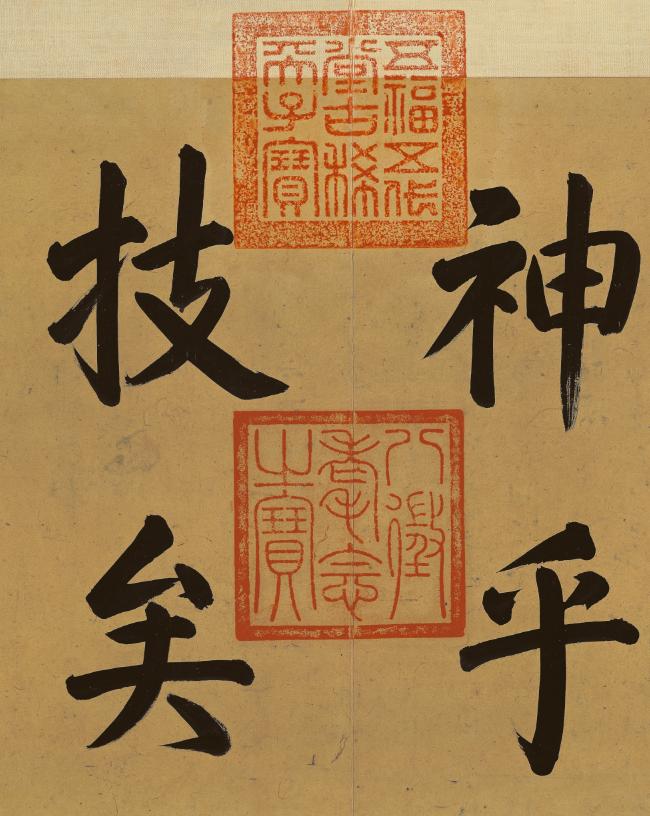 神乎
技矣
五福五代
堂古稀
天子寶
八徵
耄念
之寶